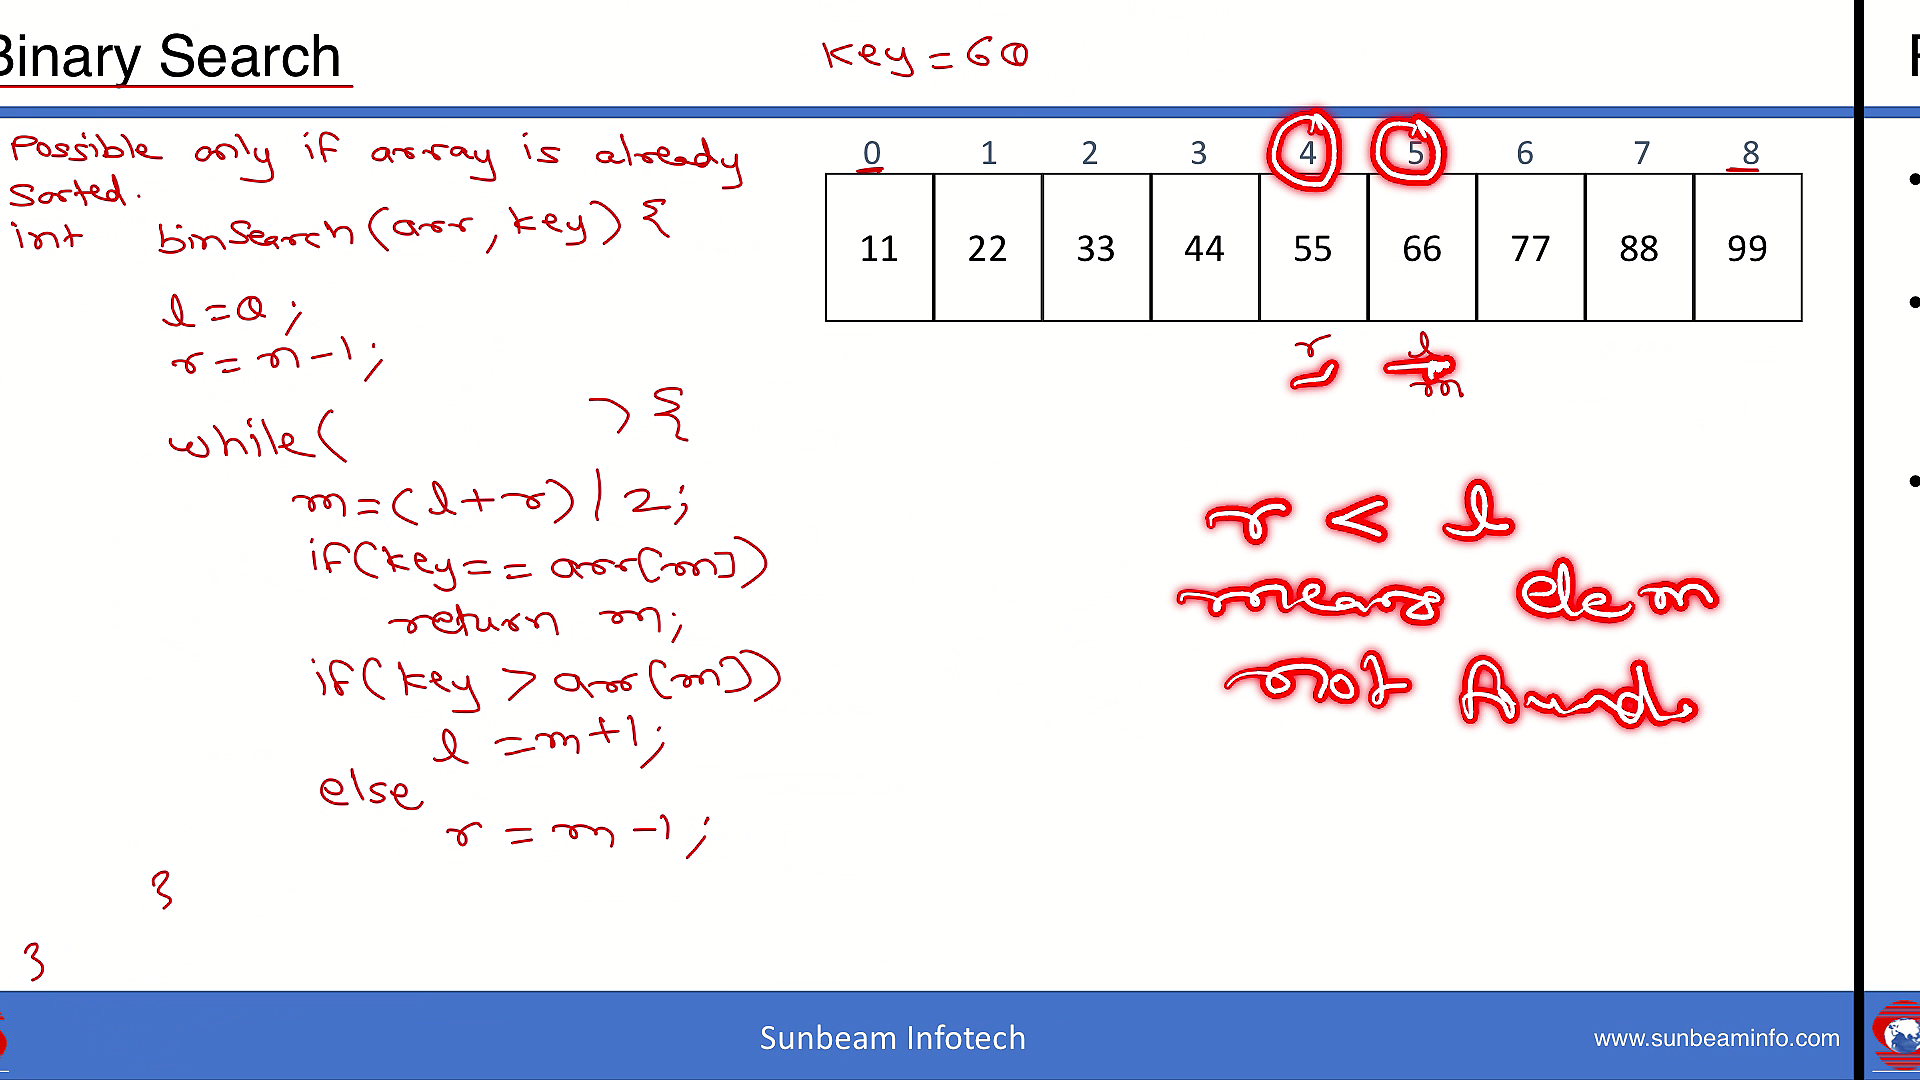 Binary Search
key = 60
Possible only if array is already
sorted.
int binSearch(arr, key) {
l = 0;
r = n-1;
while( ) {
m = (l+r) / 2;
if(key == arr[m])
return m;
if(key > arr[m])
l = m+1;
else
r = m-1;
}
}
0 1 2 3 4 5 6 7 8
11 22 33 44 55 66 77 88 99
r l
m
r < l
means elem
not found
Sunbeam Infotech
www.sunbeaminfo.com